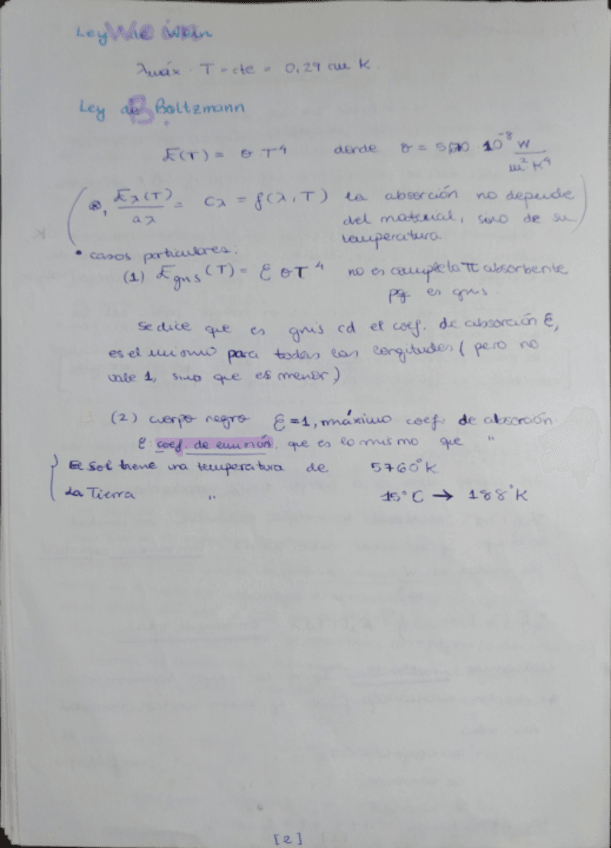 Ley de Wein
λmáx · T = cte = 0,29 cm K.
Ley de Boltzmann
E(T) = σ T⁴ donde σ = 5,70 · 10⁻⁸ W / m² K⁴
Eλ(T) / aλ = Cλ = f(λ, T) la absorción no depende
del material, sino de su
temperatura
• casos particulares.
(1) E gris (T) = ε σ T⁴ no es completa π absorbente
pq es gris.
Se dice que es gris cd el coef. de absorción ε,
es el mismo para todas las longitudes (pero no
vale 1, sino que es menor)
(2) cuerpo negro ε = 1, máximo coef. de absorción
ε: coef. de emisión, que es lo mismo que "
El Sol tiene una temperatura de 5760°K
La Tierra " 15°C → 188°K
[2]